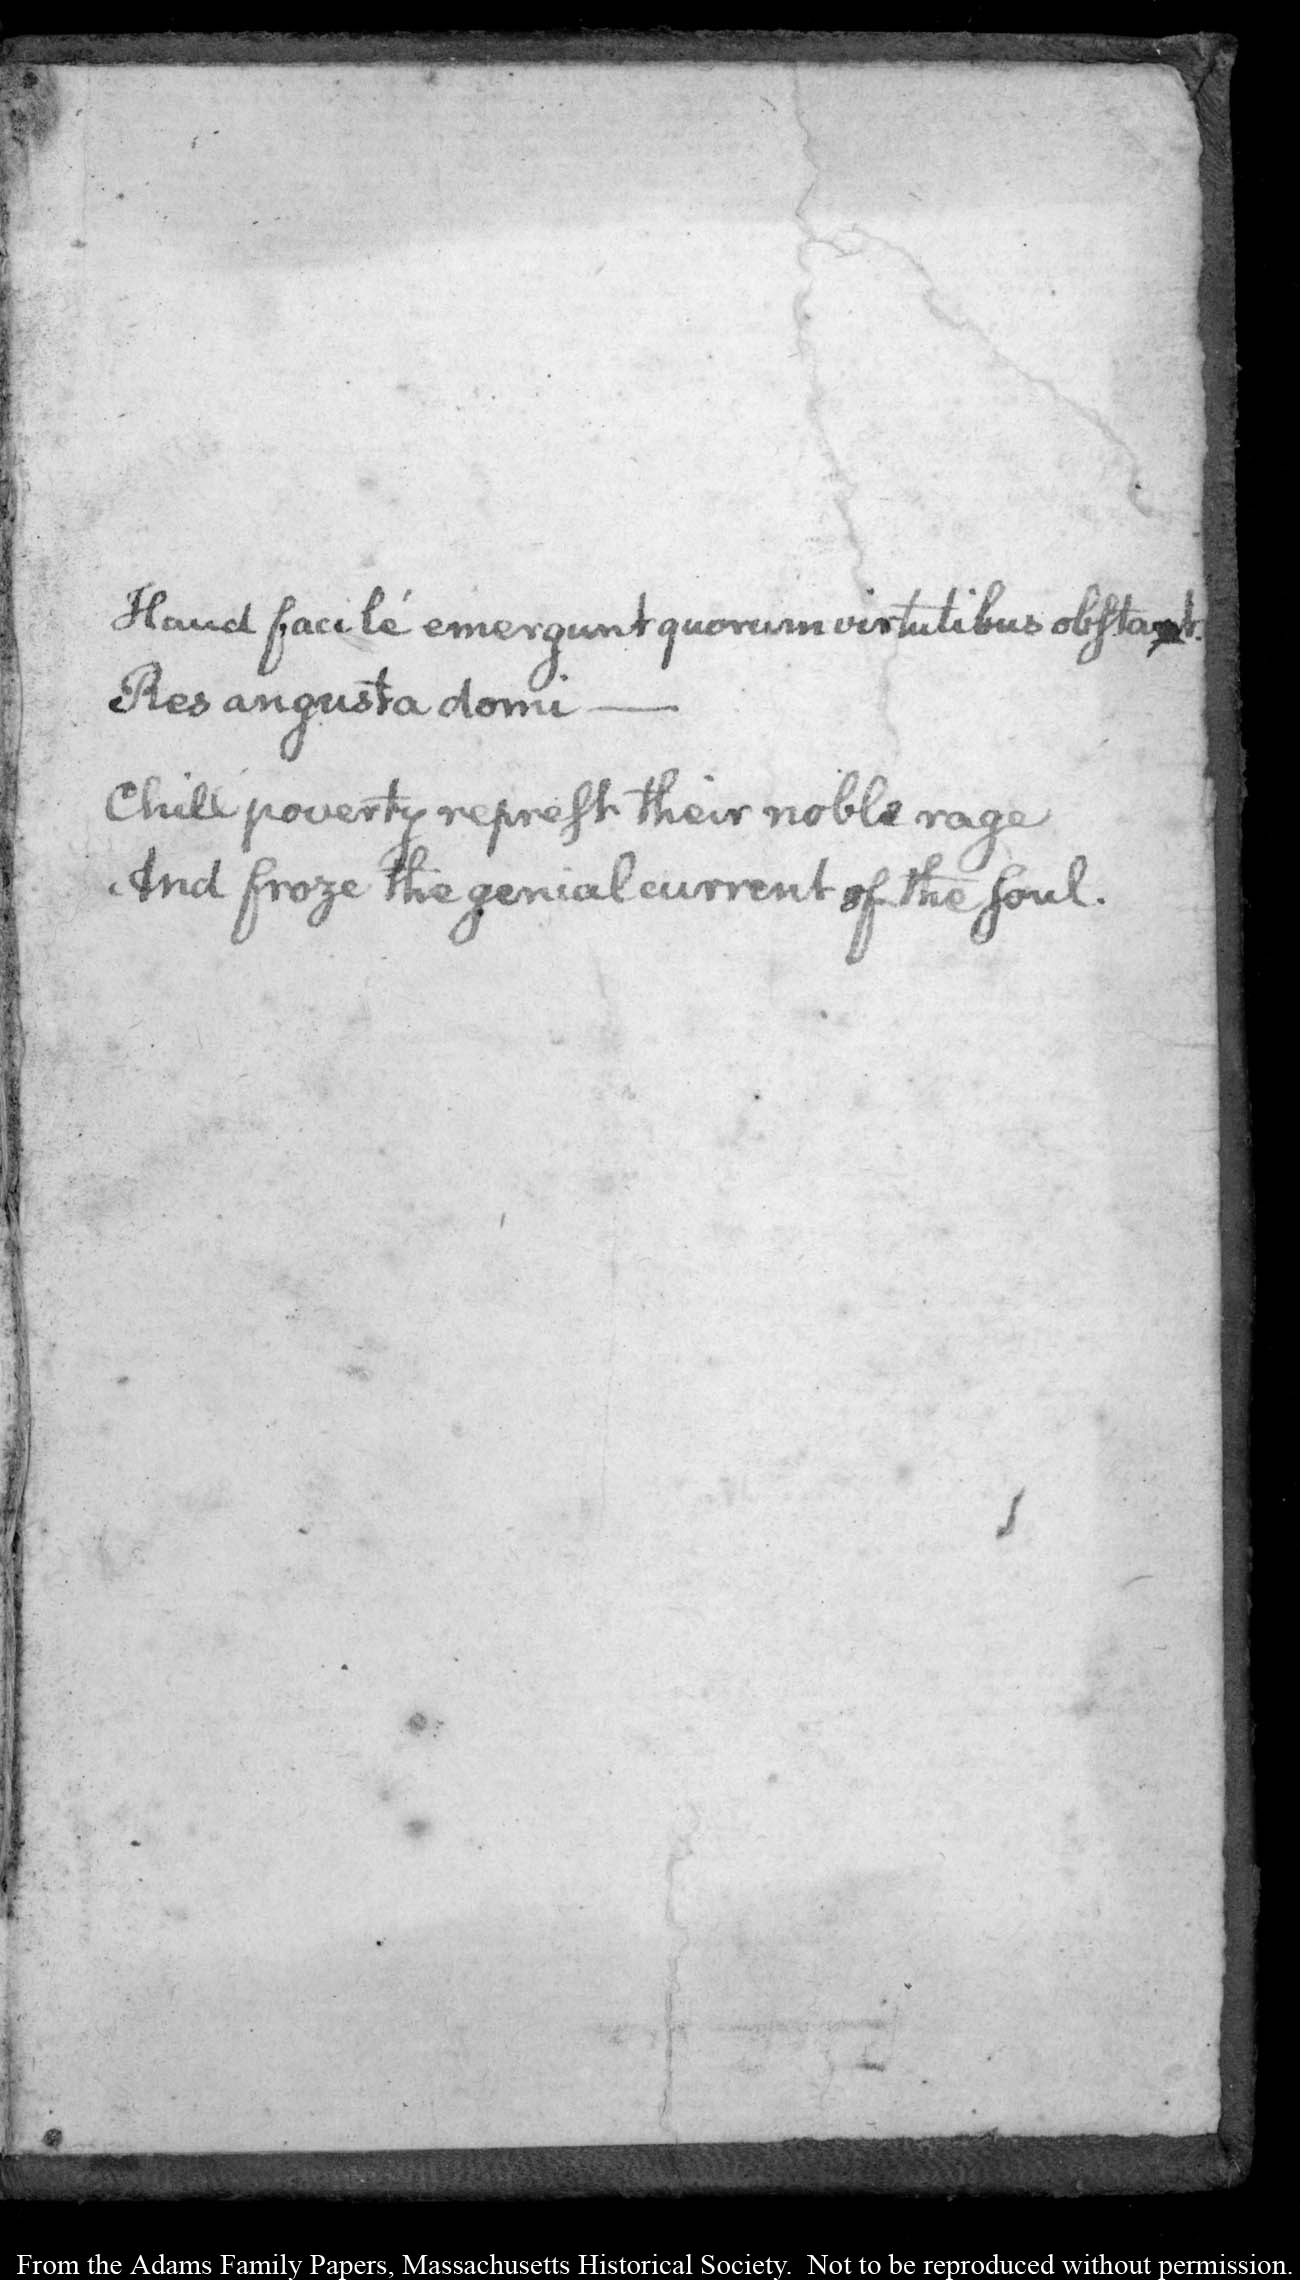 Haud facilé emergunt quorum virtutibus obſtant.
Res angusta domi —
Chill poverty repreſt their noble rage
And froze the genial current of the ſoul.
From the Adams Family Papers, Massachusetts Historical Society. Not to be reproduced without permission.